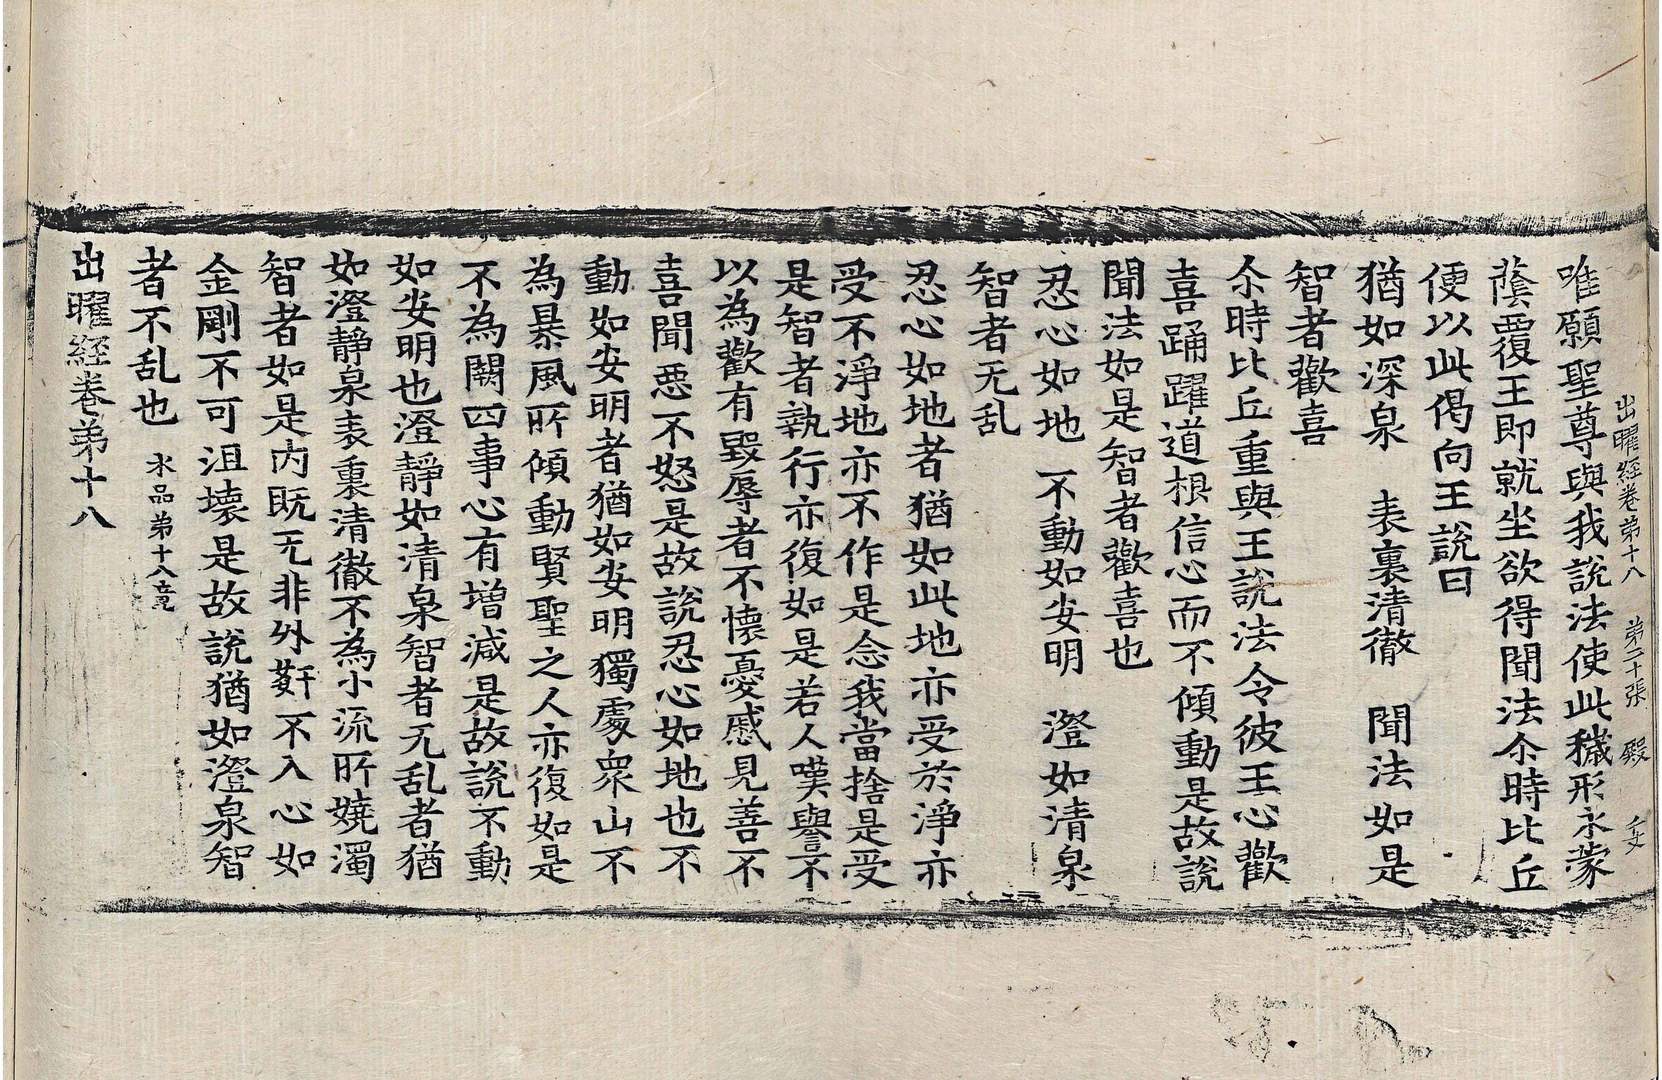 出曜経卷苐十八　苐二十張　殿
唯願聖尊與我說法使此穢形永蒙
蔭覆王即就坐欲得聞法尒時比丘
便以此偈向王說曰
猶如深泉　表裏清徹　聞法如是
智者歡喜
尒時比丘重與王說法令彼王心歡
喜踊躍道根信心而不傾動是故說
聞法如是智者歡喜也
忍心如地　不動如安明　澄如清泉
智者无乱
忍心如地者猶如此地亦受於淨亦
受不淨地亦不作是念我當捨是受
是智者執行亦復如是若人嘆譽不
以為歡有毀辱者不懷憂慼見善不
喜聞惡不怒是故說忍心如地也不
動如安明者猶如安明獨處衆山不
為暴風所傾動賢聖之人亦復如是
不為闕四事心有增減是故說不動
如安明也澄靜如清泉智者无乱者猶
如澄靜泉表裏清徹不為小流所嬈濁
智者如是内既无非外姧不入心如
金剛不可沮壊是故說猶如澄泉智
者不乱也　水品苐十八竟
出曜経卷苐十八